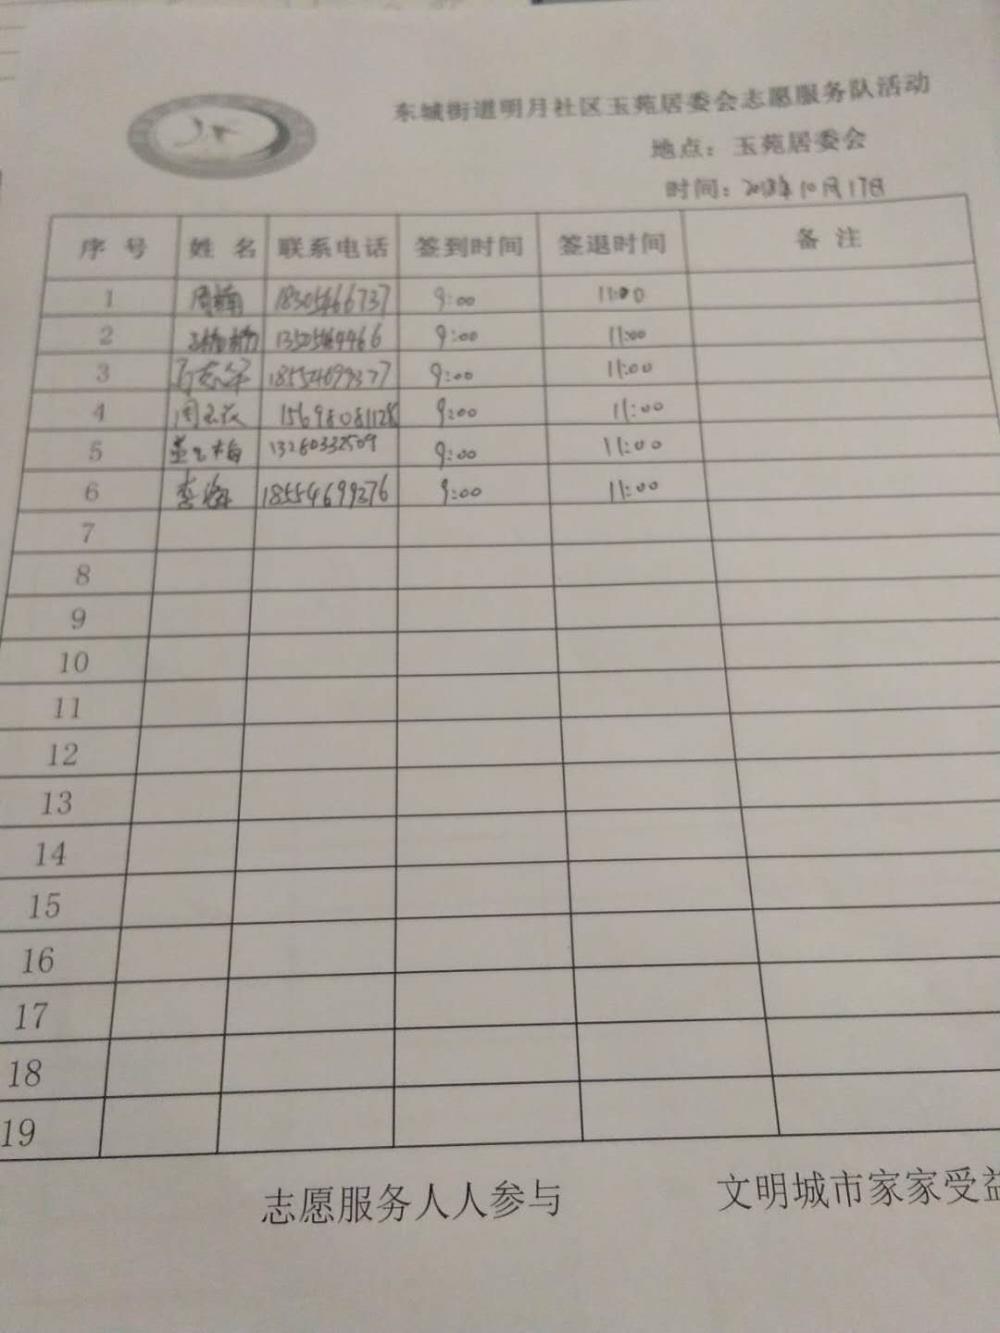 东城街道明月社区玉苑居委会志愿服务队活动
地点：玉苑居委会
时间：2018年10月17日
序号 姓名 联系电话 签到时间 签退时间 备注
1 周楠 18305466737 9:00 11:00
2 9:00 11:00
3 18554699377 9:00 11:00
4 15698081128 9:00 11:00
5 13280332509 9:00 11:00
6 李海 18554699376 9:00 11:00
7
8
9
10
11
12
13
14
15
16
17
18
19
志愿服务人人参与 文明城市家家受益